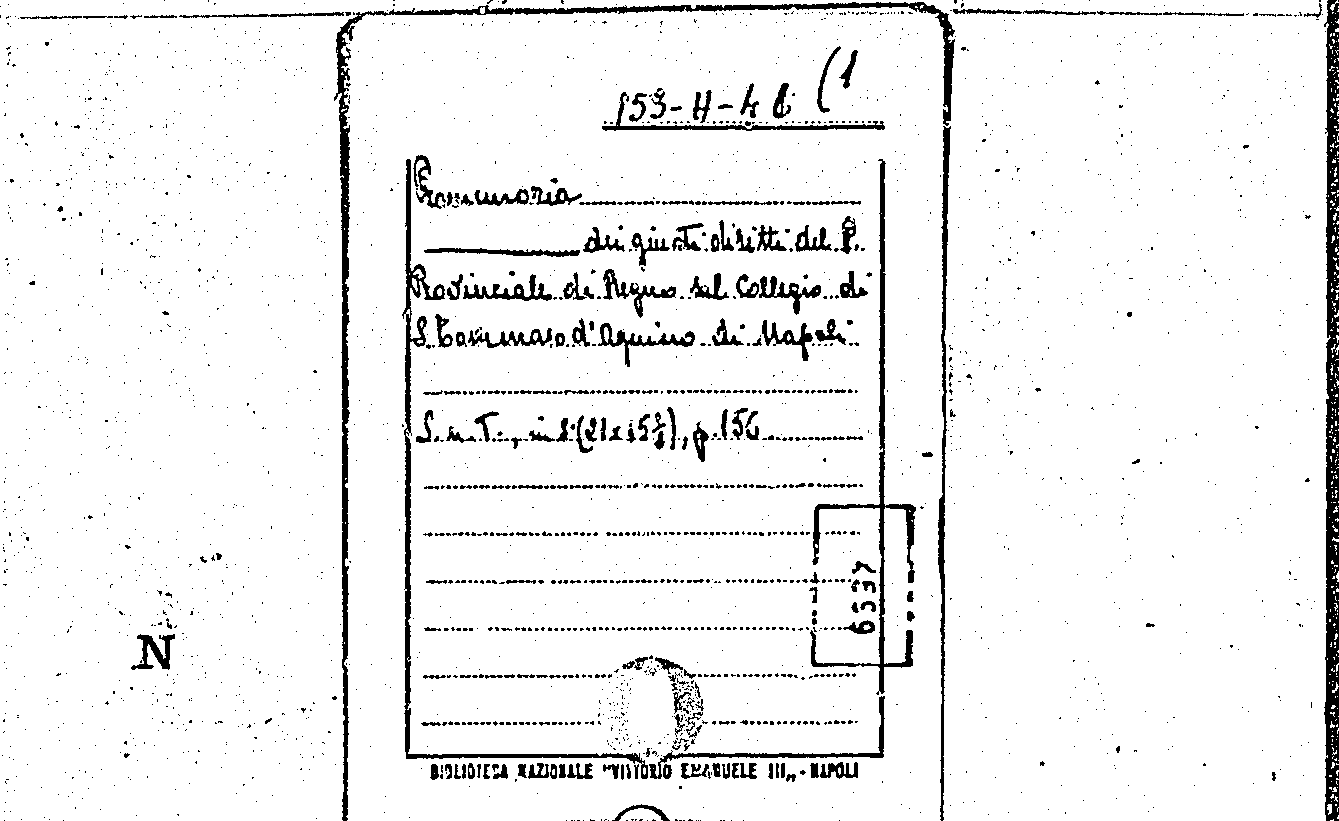 153-H-4 (1
Promemoria
dei giusti diritti del P.
Provinciale di Regno sul Collegio di
S. Tommaso d'Aquino di Napoli
S. n. T., in 8° (21x15½), p. 156
6537
N
BIBLIOTECA NAZIONALE "VITTORIO EMANUELE III„ - NAPOLI